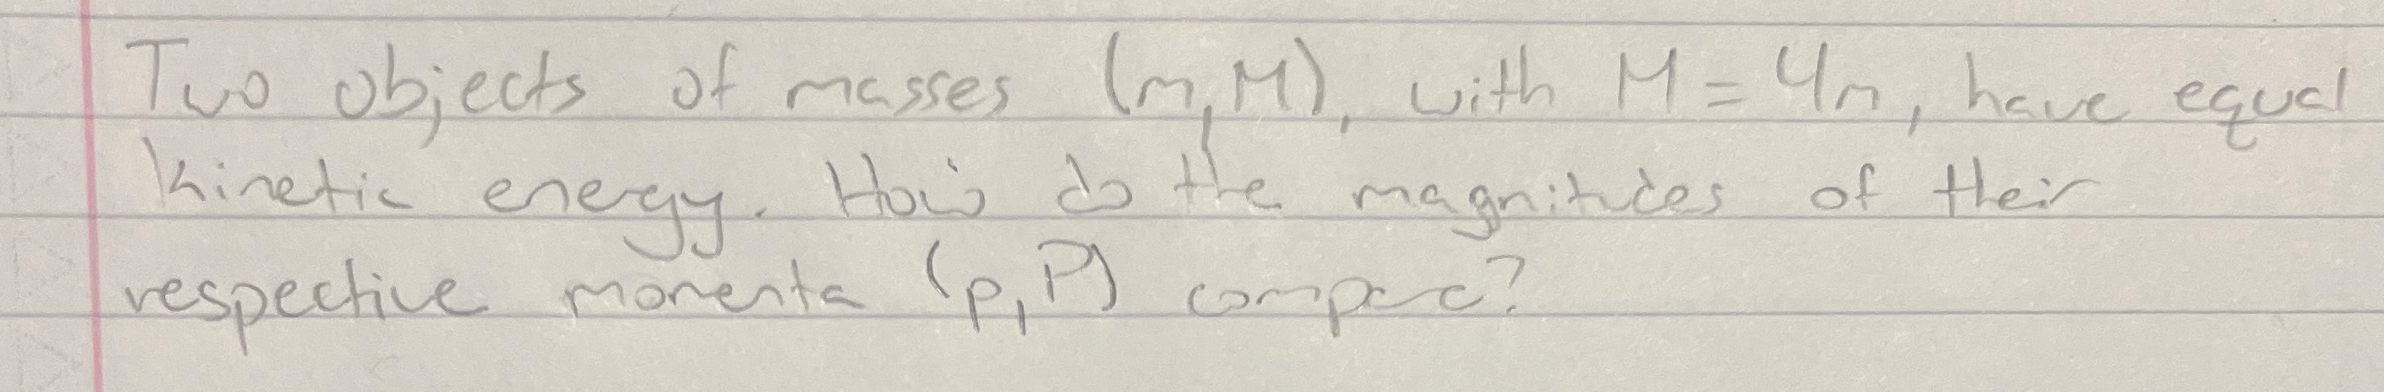 Two objects of masses (m, M), with M = 4m, have equal
kinetic energy. How do the magnitudes of their
respective momenta (p, P) compare?